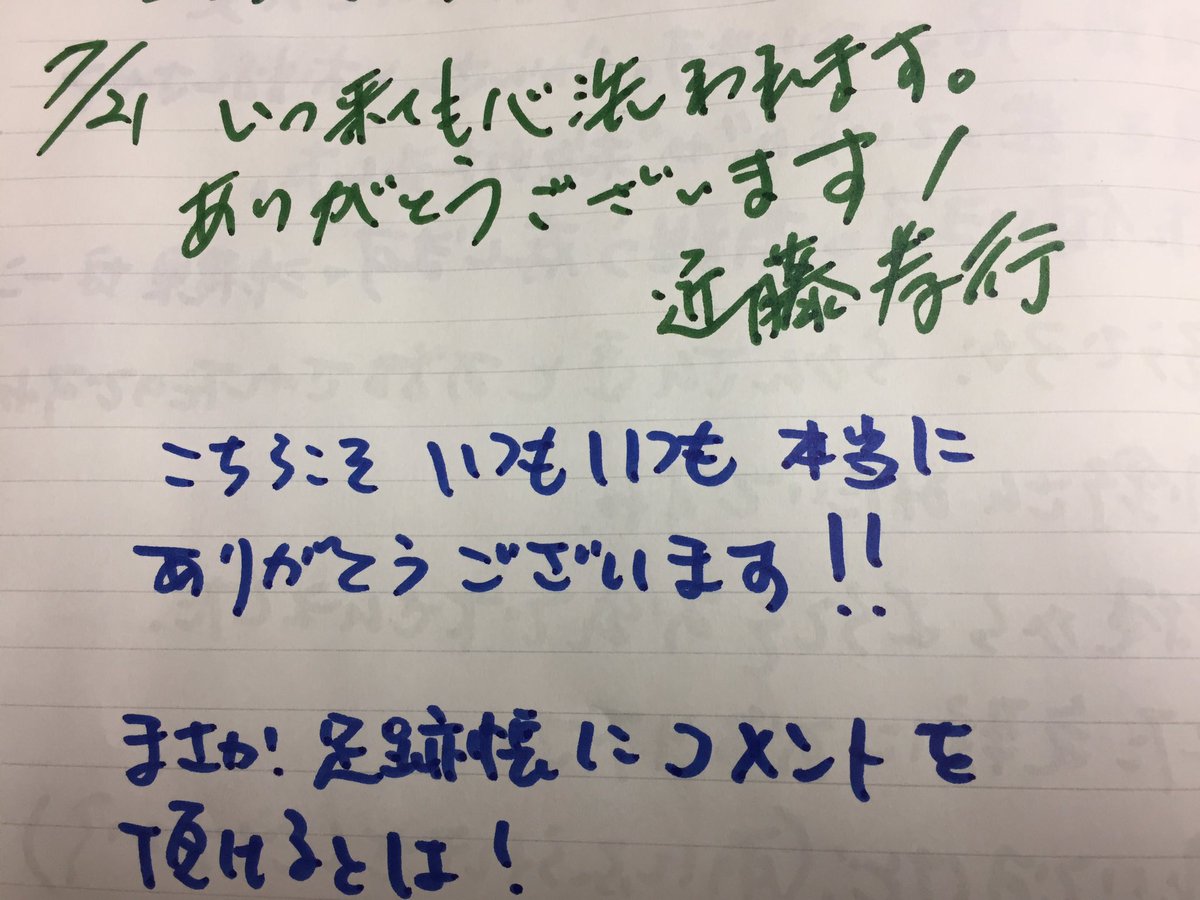 7/21 いつ来ても心洗われます。
ありがとうございます!
近藤孝行
こちらこそ いつもいつも 本当に
ありがとうございます!!
まさか! 足跡懐にコメントを
頂けるとは!